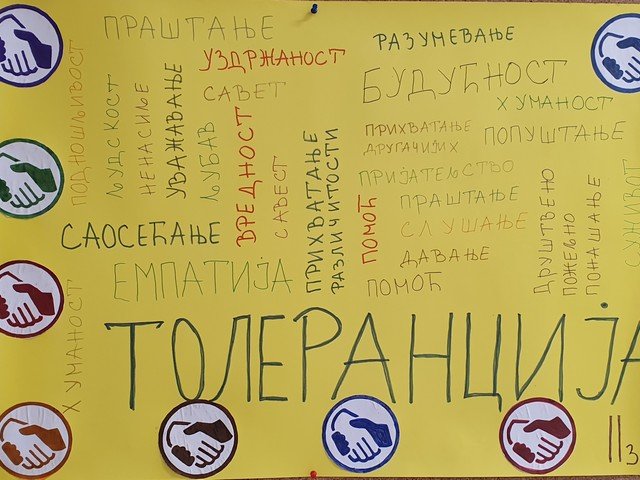 ПРАШТАЊЕ
РАЗУМЕВАЊЕ
УЗДРЖАНОСТ
САВЕТ
БУДУЋНОСТ
ХУМАНОСТ
ПОДНОШЉИВОСТ
ЉУДСКОСТ
НЕНАСИЉЕ
УВАЖАВАЊЕ
ЉУБАВ
ВРЕДНОСТ
САВЕСТ
ПРИХВАТАЊЕ
РАЗЛИЧИТОСТИ
ПРИХВАТАЊЕ
ДРУГАЧИЈИХ
ПОПУШТАЊЕ
ПРИЈАТЕЉСТВО
ПРАШТАЊЕ
СЛУШАЊЕ
ПОМОЋ
ДАВАЊЕ
ПОМОЋ
ДРУШТВЕНО
ПОЖЕЉНО
ПОНАШАЊЕ
САОСЕЋАЊЕ
ЕМПАТИЈА
ХУМАНОСТ
ТОЛЕРАНЦИЈА
II3